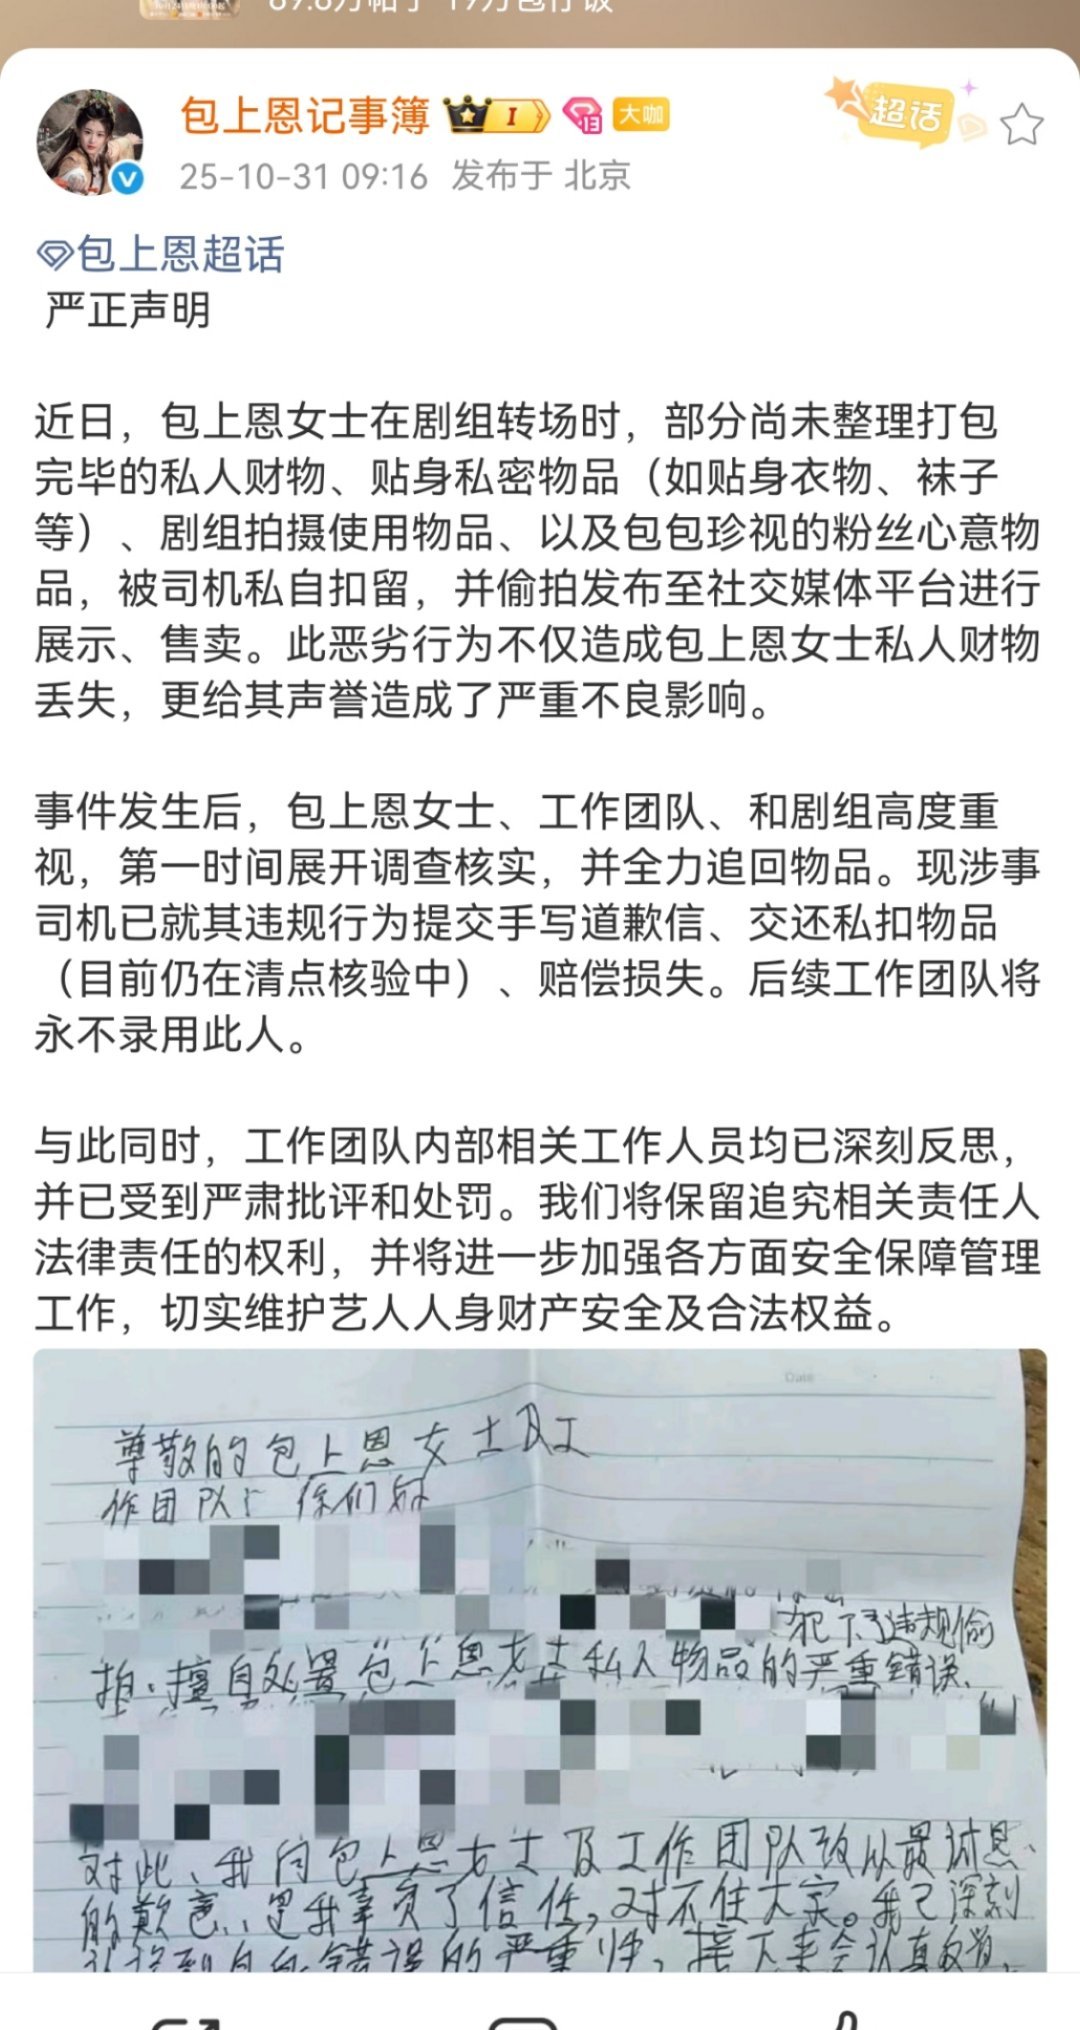 89.8万帖子 19万包仔饭
包上恩记事簿 I 13 大咖
超话
25-10-31 09:16 发布于 北京
包上恩超话
严正声明
近日，包上恩女士在剧组转场时，部分尚未整理打包
完毕的私人财物、贴身私密物品（如贴身衣物、袜子
等）、剧组拍摄使用物品、以及包包珍视的粉丝心意物
品，被司机私自扣留，并偷拍发布至社交媒体平台进行
展示、售卖。此恶劣行为不仅造成包上恩女士私人财物
丢失，更给其声誉造成了严重不良影响。
事件发生后，包上恩女士、工作团队、和剧组高度重
视，第一时间展开调查核实，并全力追回物品。现涉事
司机已就其违规行为提交手写道歉信、交还私扣物品
（目前仍在清点核验中）、赔偿损失。后续工作团队将
永不录用此人。
与此同时，工作团队内部相关工作人员均已深刻反思，
并已受到严肃批评和处罚。我们将保留追究相关责任人
法律责任的权利，并将进一步加强各方面安全保障管理
工作，切实维护艺人人身财产安全及合法权益。
Date
尊敬的包上恩女士及工
作团队：你们好
犯下了违规偷
拍、擅自处置包上恩女士私人物品的严重错误、
对此、我向包上恩女士及工作团队致以最诚恳、
的歉意、是我辜负了信任，对不住大家。我已深刻
认识到自的错误的严重性，接下来会认真改过，